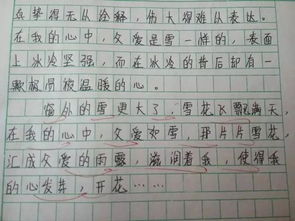 真挚得无从诠释，伟大得难从表达。
在我的心中，父爱是雪一样的，表面
上冰冷坚强，而在冰冷的背后却有一
颗极端被温暖的心。
窗外的雪更大了，雪花飞飘满天，
在我的心中，父爱如雪，那片片雪花，
汇成父爱的雨露，滋润着我，使得我
的心发芽，开花……